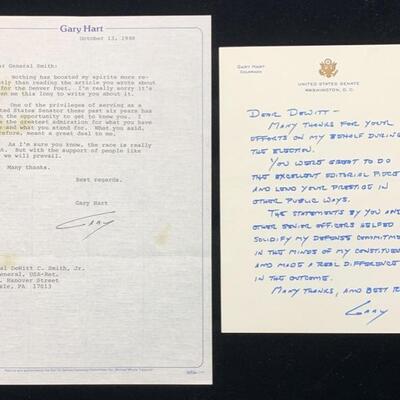 Gary Hart
October 13, 1980
General Smith:
Nothing has boosted my spirits more re-
than reading the article you wrote about
for the Denver Post. I'm really sorry it's
me this long to write you about it.
One of the privileges of serving as a
United States Senator these past six years has
the opportunity to get to know you. I
the greatest admiration for what you have
and what you stand for. What you said,
therefore, meant a great deal to me.
As I'm sure you know, the race is really
But with the support of people like
we will prevail.
Many thanks.
Best regards.
Gary Hart
Gary
DeWitt C. Smith, Jr.
General, USA-Ret.
Hanover Street
PA 17013
GARY HART
COLORADO
UNITED STATES SENATE
WASHINGTON, D. C.
DEAR DEWITT -
MANY THANKS FOR YOUR
EFFORTS ON MY BEHALF DURING
THE ELECTION.
YOU WERE GREAT TO DO
THE EXCELLENT EDITORIAL PIECE
AND LEND YOUR PRESTIGE IN
OTHER PUBLIC WAYS.
THE STATEMENTS BY YOU AND
OTHER SENIOR OFFICERS HELPED
SOLIDIFY MY DEFENSE COMMITMENT
IN THE MINDS OF MY CONSTITUENTS
AND MADE A REAL DIFFERENCE
IN THE OUTCOME.
MANY THANKS, AND BEST
GARY